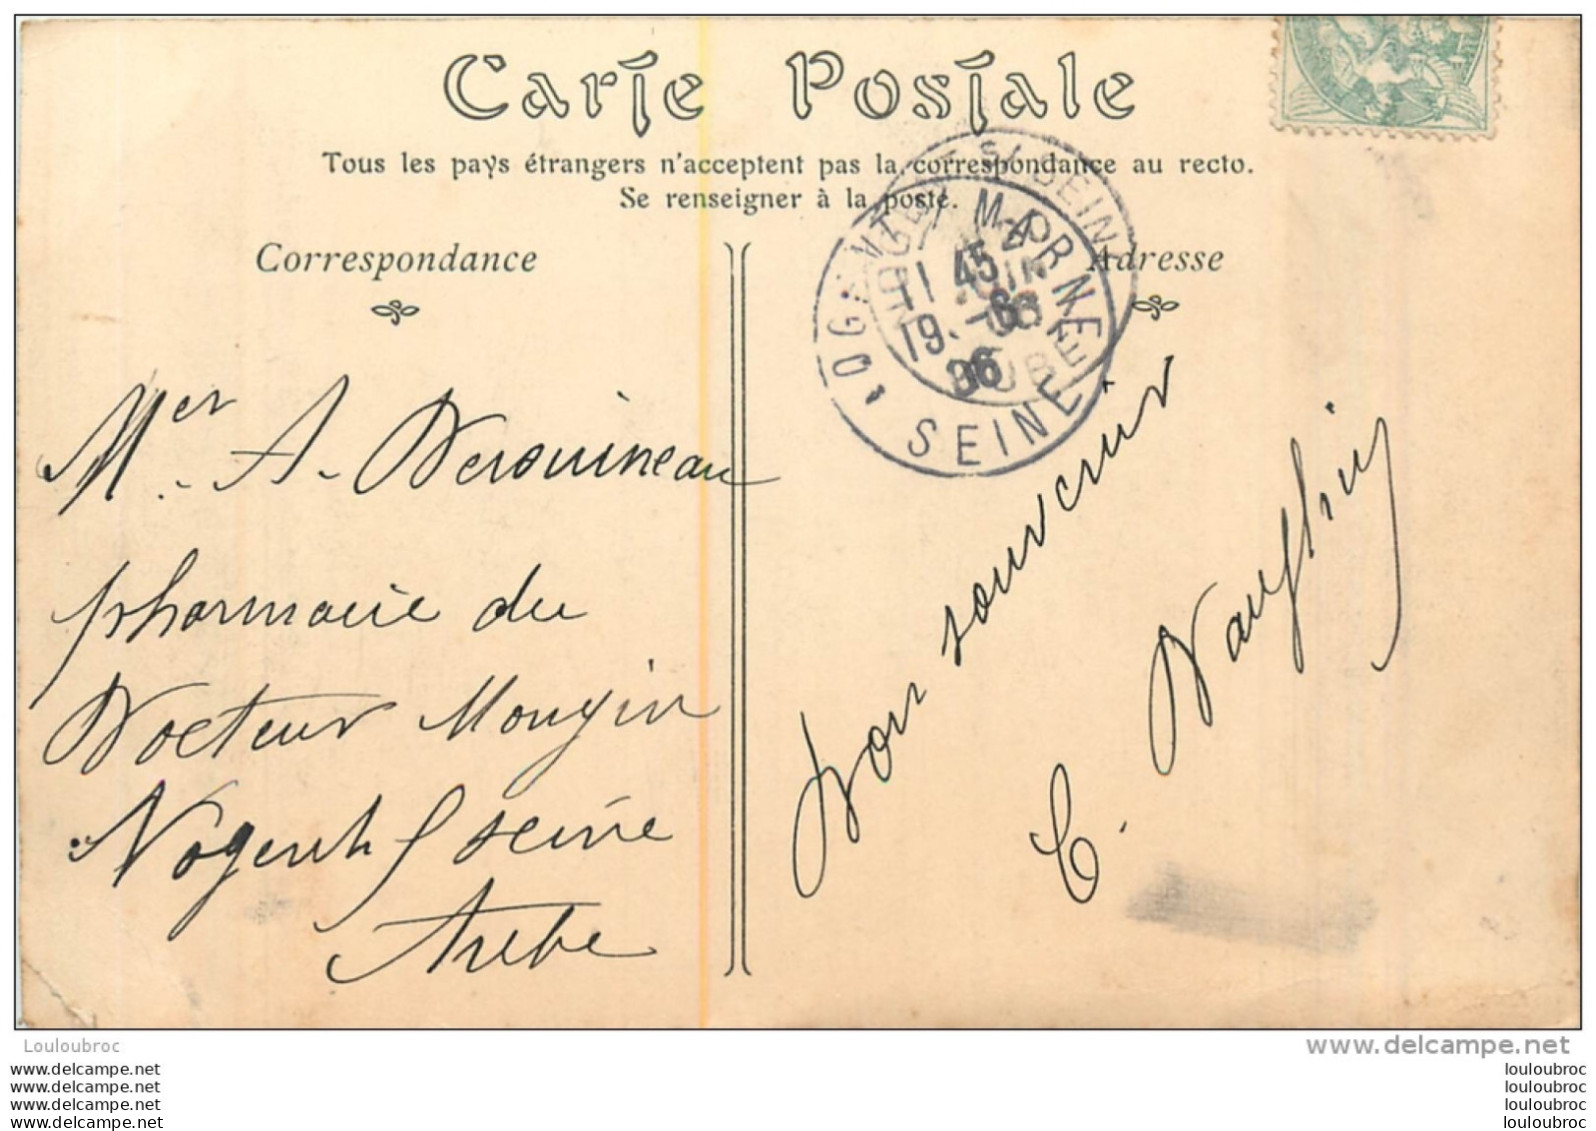 Carte Postale
Tous les pays étrangers n'acceptent pas la correspondance au recto.
Se renseigner à la poste.
Correspondance
Adresse
NOGENT S/ MARNE
11 45
19. 6
06
SEINE
Mer. A. Derouineau
pharmacie du
Docteur Mougin
Nogent S Seine
Aube
Bon souvenir
Louloubroc
www.delcampe.net
www.delcampe.net
www.delcampe.net
www.delcampe.net
www.delcampe.net
louloubroc
louloubroc
louloubroc
louloubroc